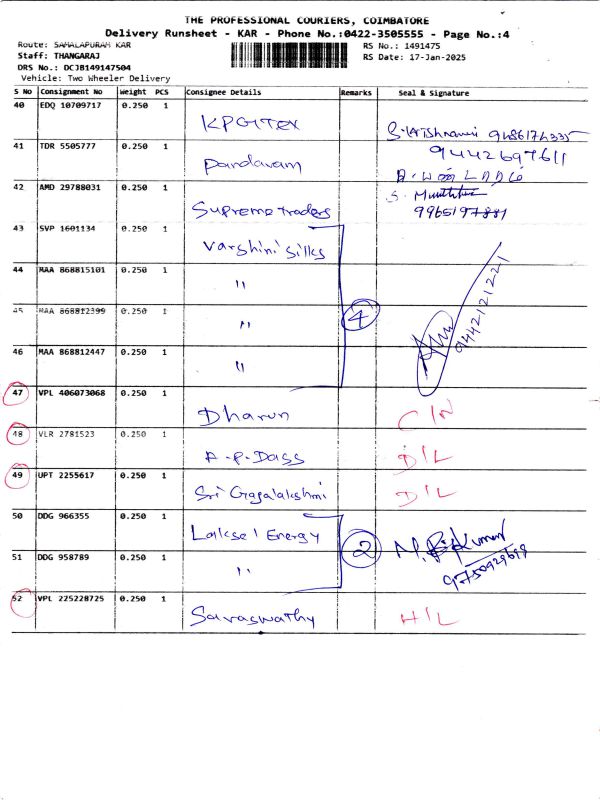 THE PROFESSIONAL COURIERS, COIMBATORE
Delivery Runsheet - KAR - Phone No.:0422-3505555 - Page No.:4
Route: SAMALAPURAM KAR RS No.: 1491475
Staff: THANGARAJ RS Date: 17-Jan-2025
DRS No.: DCJB149147504
Vehicle: Two Wheeler Delivery
S No Consignment No Weight PCS Consignee Details Remarks Seal & Signature
40 EDQ 10709717 0.250 1 KPG Tex S. Krishnaveni 9486174335
41 TDR 5505777 0.250 1 Pandavam 9442697611
42 AMD 29788031 0.250 1 Supreme traders 9965197881
43 SVP 1601134 0.250 1 Varshini silks
44 MAA 868815101 0.250 1 "
45 MAA 868812399 0.250 1 " 4 9442121221
46 MAA 868812447 0.250 1 "
47 VPL 406073068 0.250 1 Dharun C/N
48 VLR 2781523 0.250 1 A.P. Dass D/L
49 UPT 2255617 0.250 1 Sri Gagalakshmi D/L
50 DDG 966355 0.250 1 Laksel Energy 2
51 DDG 958789 0.250 1 "
52 VPL 225228725 0.250 1 Saraswathy H/L